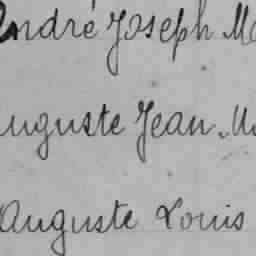 André Joseph M
Auguste Jean M
Auguste Louis